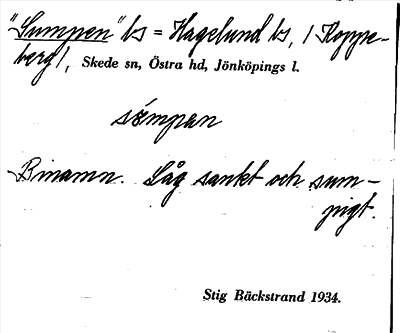 "Sumpen" bs = Hagelund bs, / Koppe-
berg /, Skede sn, Östra hd, Jönköpings l.
sömpan
Binamn. Låg sankt och sum-
pigt.
Stig Bäckstrand 1934.